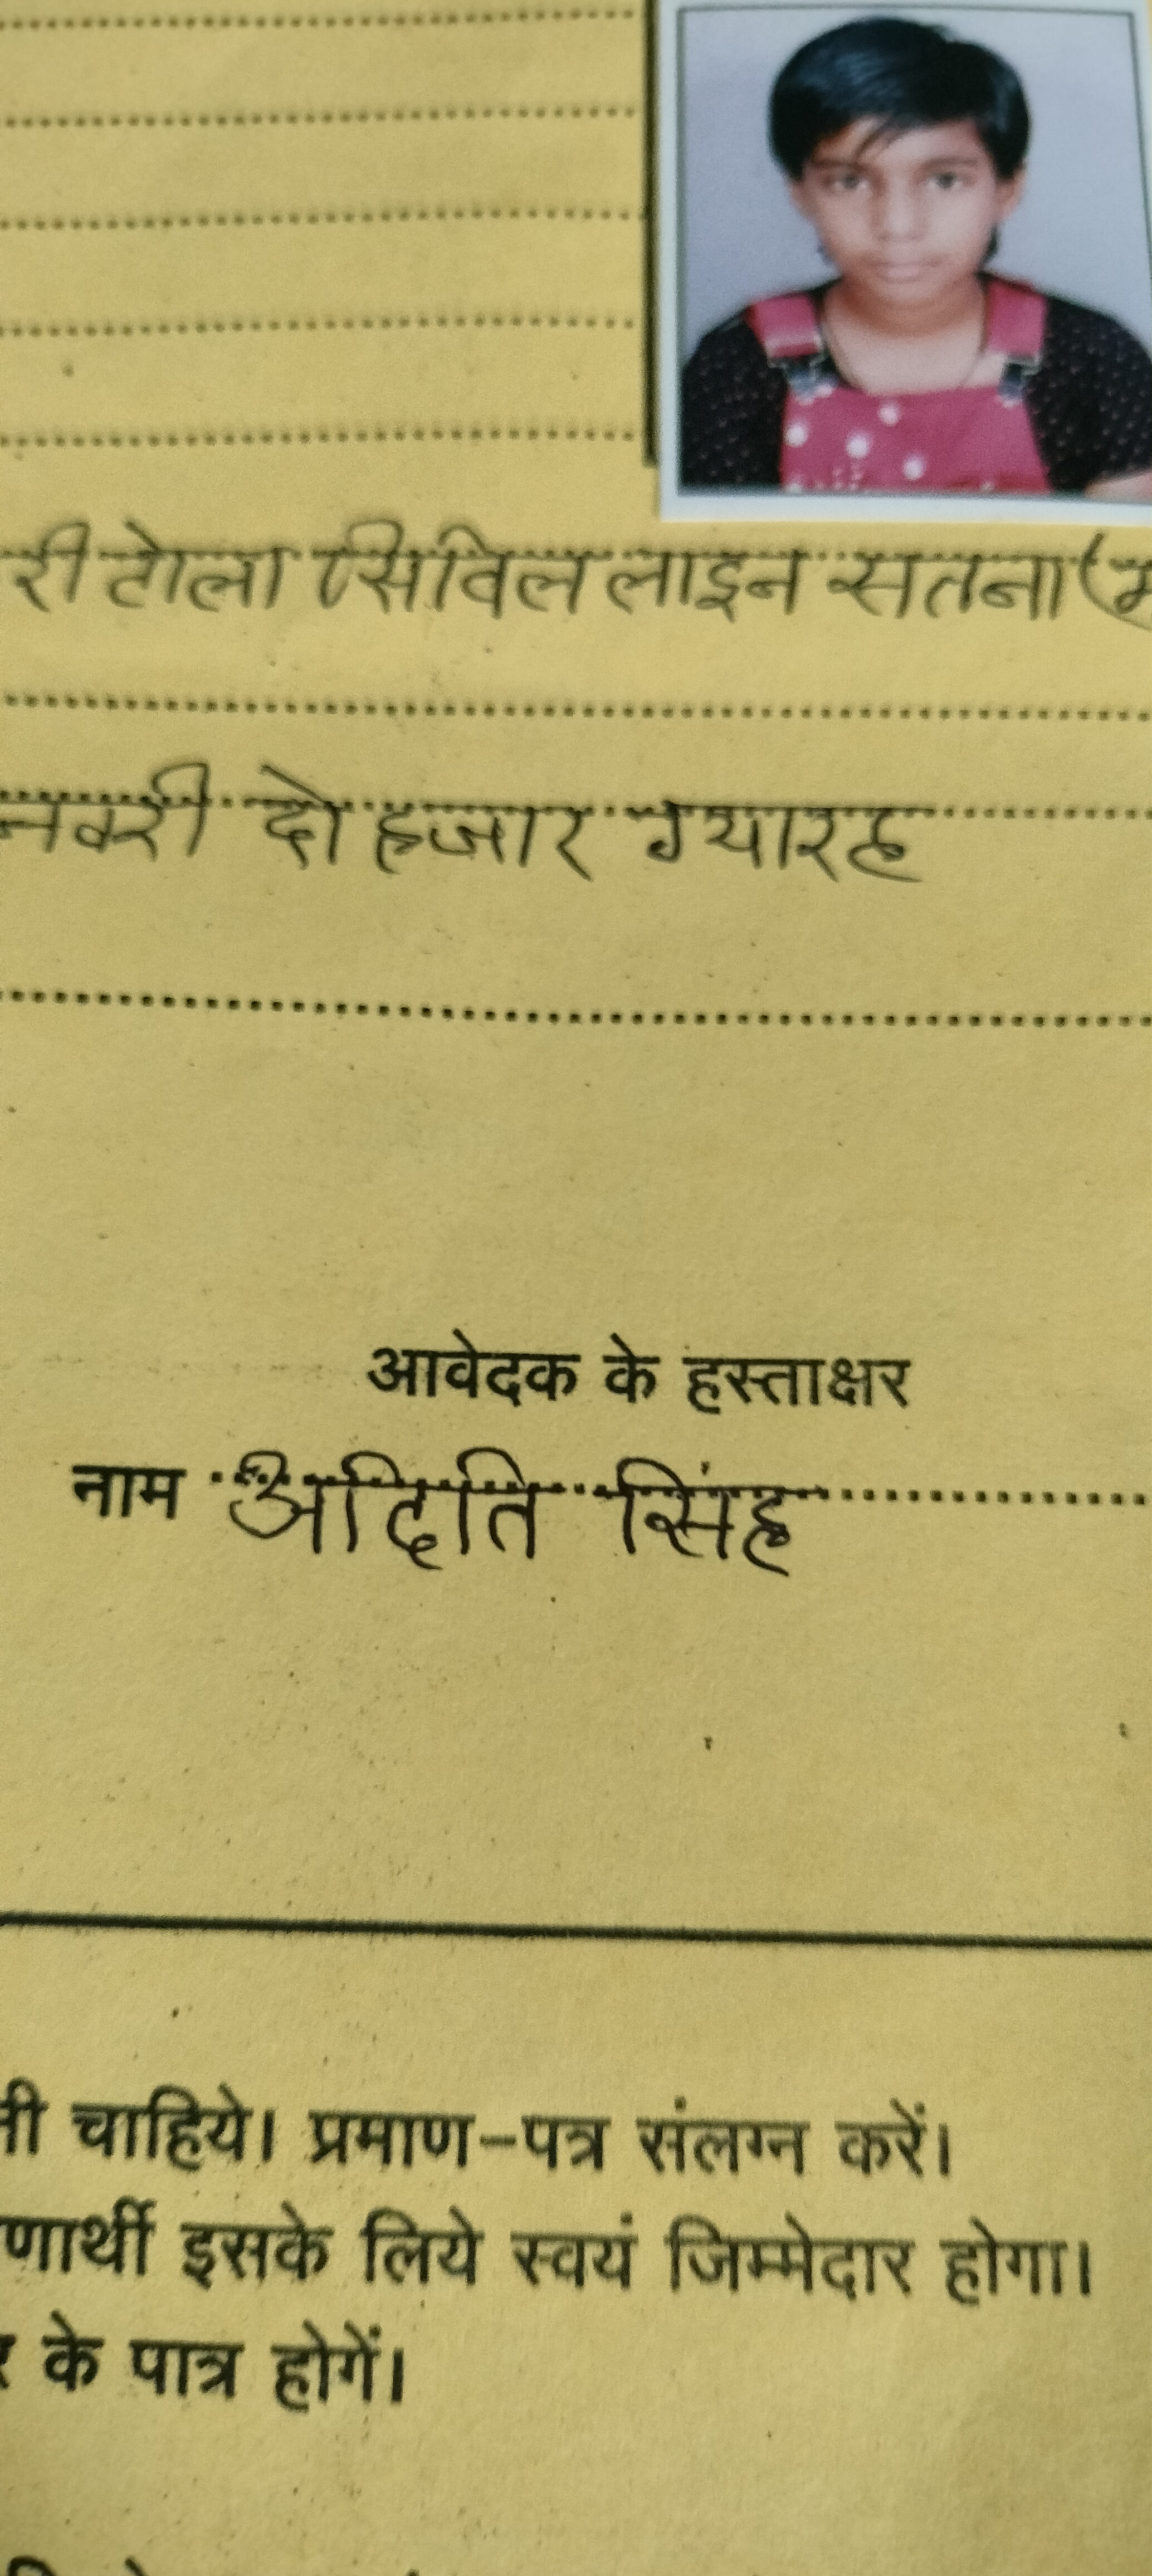 री टोला सिविल लाइन सतना (म
नवरी दो हजार ग्यारह
आवेदक के हस्ताक्षर
नाम अदिति सिंह
नी चाहिये। प्रमाण-पत्र संलग्न करें।
णार्थी इसके लिये स्वयं जिम्मेदार होगा।
र के पात्र होगें।